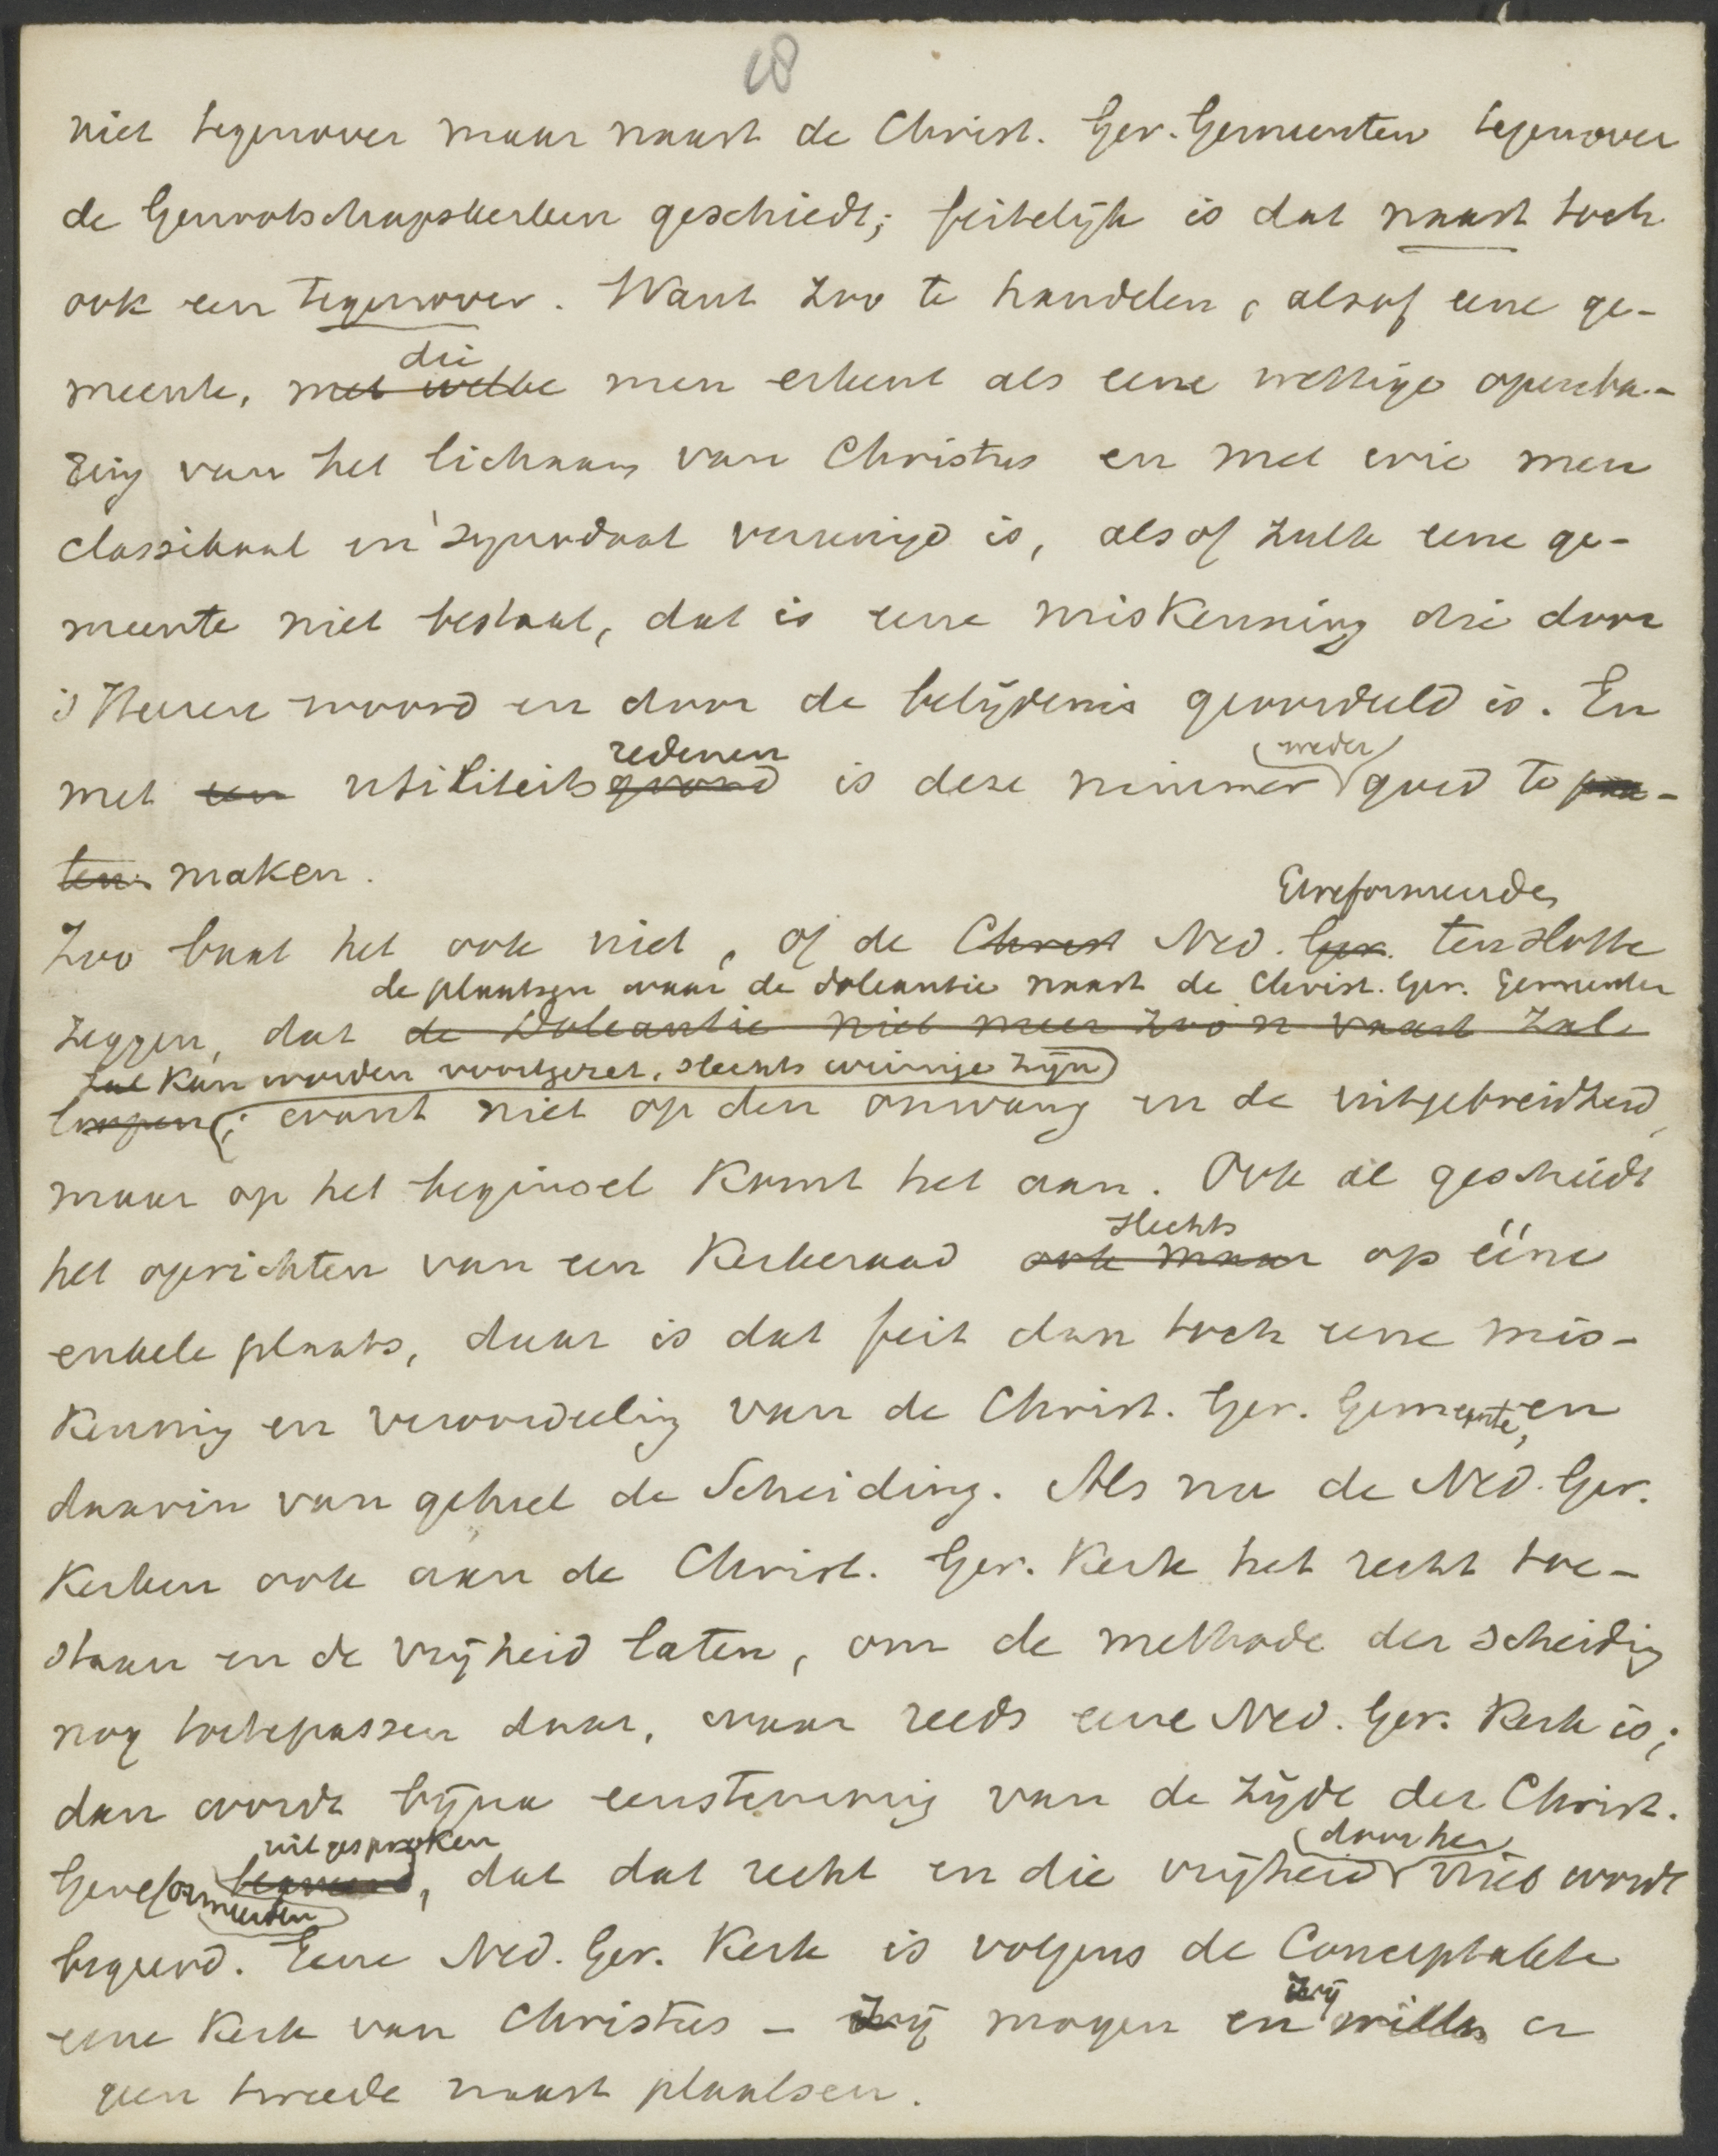 18
niet tegenover maar naast de Christ. Ger. Gemeenten tegenover
de Genootschapskerken geschiedt; feitelijk is dat naast toch
ook een tegenover. Want zoo te handelen, alsof eene ge-
die
meente, met welke men erkent als eene wettige openba-
ring van het lichaam van Christus en met wie men
classikaal en synodaal vereenigd is, alsof zulk eene ge-
meente niet bestaat, dat is eene miskenning die door
's Heeren woord en door de belijdenis geoordeeld is. En
redenen weder
met een utiliteitsgrond is deze nimmer goed te pra-
ten maken.
Gereformeerden
Zoo baat het ook niet, of de Christ Ned. Ger. ten slotte
de plaatsen waar de doleantie naast de Christ. Ger. Gemeenten
zeggen, dat de Doleantie niet meer zoo'n vaart zal
zal kan worden voortgezet, slechts weinige zijn
loopen; want niet op den omvang en de uitgebreidheid,
maar op het beginsel komt het aan. Ook al geschiedt
slechts
het oprichten van een Kerkeraad ook maar op ééne
enkele plaats, daar is dat feit dan toch eene mis-
kenning en veroordeeling van de Christ. Ger. Gemeente, en
daarin van geheel de Scheiding. Als nu de Ned. Ger.
Kerken ook aan de Christ. Ger. Kerk het recht toe-
staan en de vrijheid laten, om de methode der scheiding
nog toetepassen daar, waar reeds eene Ned. Ger. Kerk is;
dan wordt bijna eenstemmig van de zijde der Christ.
uitgesproken door hen
Gereformeerden beweerd, dat dat recht en die vrijheid niet wordt
begeerd. Eene Ned. Ger. Kerk is volgens de Conceptakte
zij
eene Kerk van Christus - zij mogen en willen er
geen tweede naast plaatsen.